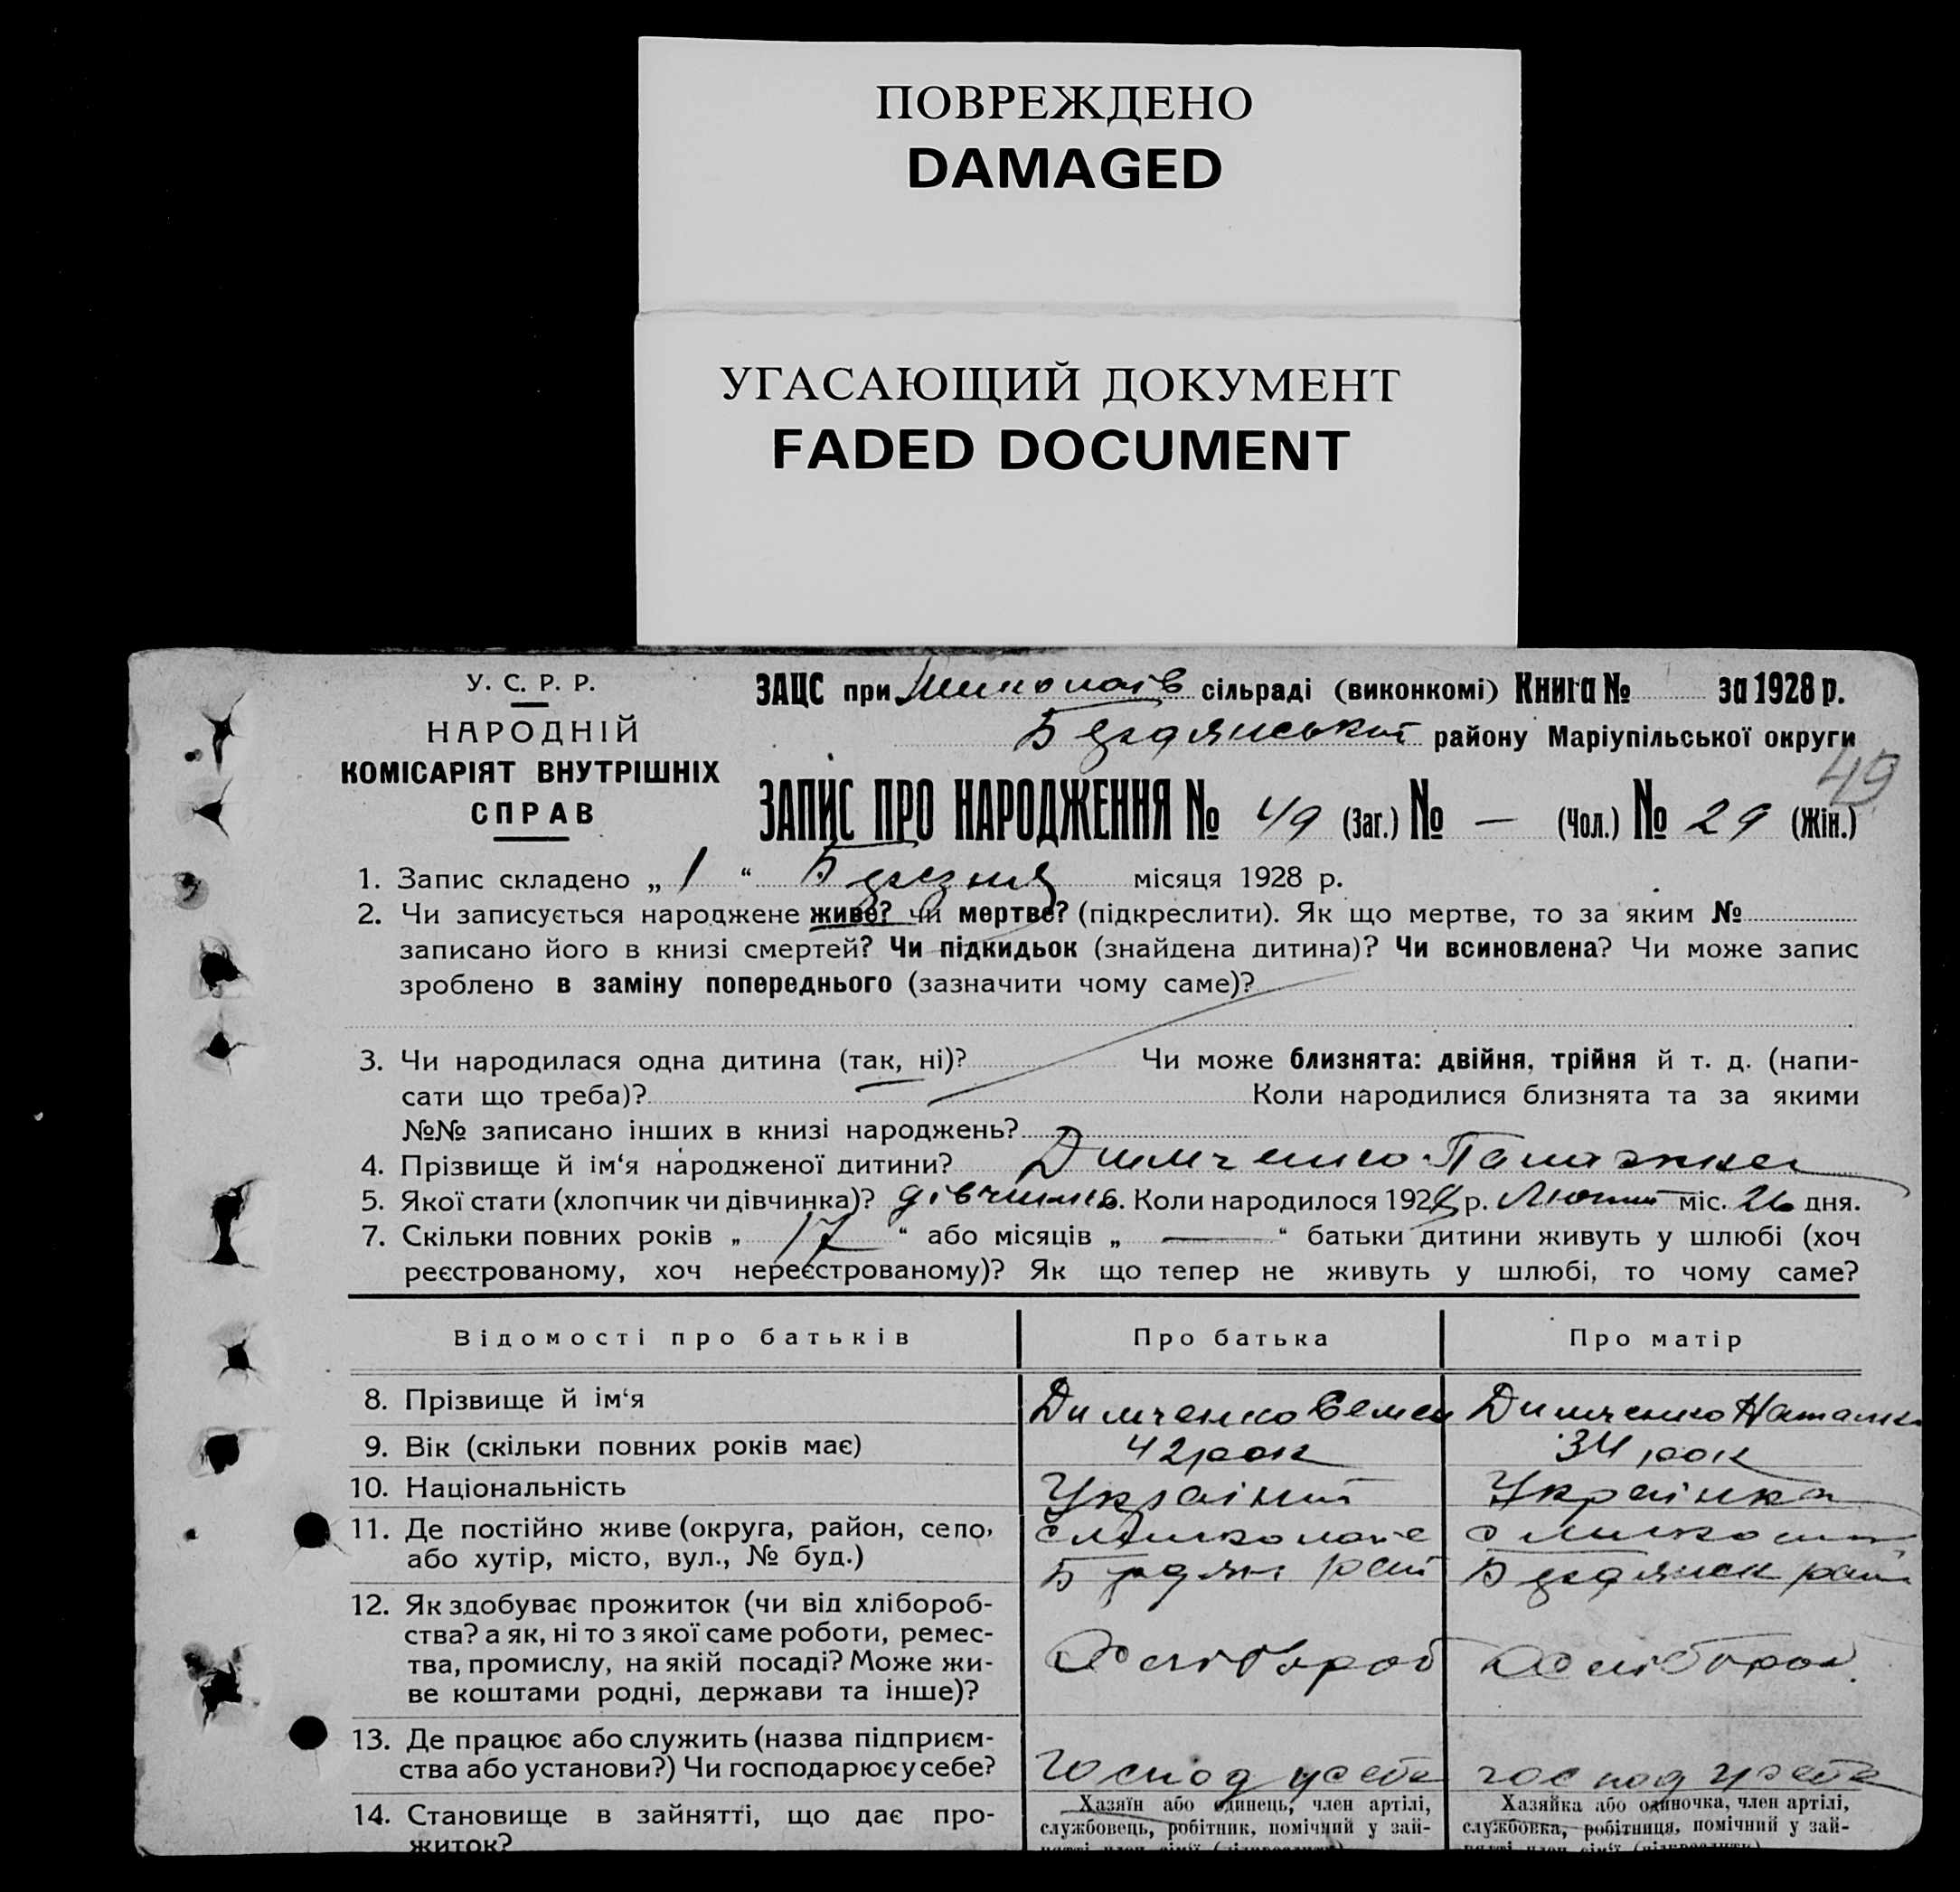 ПОВРЕЖДЕНО
DAMAGED
УГАСАЮЩИЙ ДОКУМЕНТ
FADED DOCUMENT
У. С. Р. Р.
НАРОДНІЙ
КОМІСАРІЯТ ВНУТРІШНІХ
СПРАВ
ЗАЦС при Миколаїв сільраді (виконкомі) Книга № за 1928 р.
Бердянський району Маріупільської округи
49
ЗАПИС ПРО НАРОДЖЕННЯ № 49 (Заг.) № — (Чол.) № 29 (Жін.)
1. Запис складено „ 1 “ Березня місяця 1928 р.
2. Чи записується народжене живе? чи мертве? (підкреслити). Як що мертве, то за яким №
записано його в книзі смертей? Чи підкидьок (знайдена дитина)? Чи всиновлена? Чи може запис
зроблено в заміну попереднього (зазначити чому саме)?
3. Чи народилася одна дитина (так, ні)? Чи може близнята: двійня, трійня й т. д. (напи-
сати що треба)? Коли народилися близнята та за якими
№№ записано інших в книзі народжень?
4. Прізвище й ім‘я народженої дитини? Димченко
5. Якої стати (хлопчик чи дівчинка)? дівчинка 6. Коли народилося 1928 р. Лютий міс. 26 дня.
7. Скільки повних років „ 17 “ або місяців „ — “ батьки дитини живуть у шлюбі (хоч
реєстрованому, хоч нереєстрованому)? Як що тепер не живуть у шлюбі, то чому саме?
Відомості про батьків Про батька Про матір
8. Прізвище й ім‘я Димченко Семен Димченко Наталка
9. Вік (скільки повних років має) 42 рок 34 рок
10. Національність Українець Українка
11. Де постійно живе (округа, район, село,
або хутір, місто, вул., № буд.) Бердян рай Бердянск рай
12. Як здобуває прожиток (чи від хлібороб-
ства? а як, ні то з якої саме роботи, ремес-
тва, промислу, на якій посаді? Може жи-
ве коштами родні, держави та інше)?
Хлібороб Хлібороб
13. Де працює або служить (назва підприєм-
ства або установи?) Чи господарює у себе? Господ у себе господ у себе
14. Становище в зайнятті, що дає про-
житок?
Хазяїн або одинець, член артілі,
службовець, робітник, помічний у зай-
Хазяйка або одиночка, член артілі,
службовка, робітниця, помічний у зай-